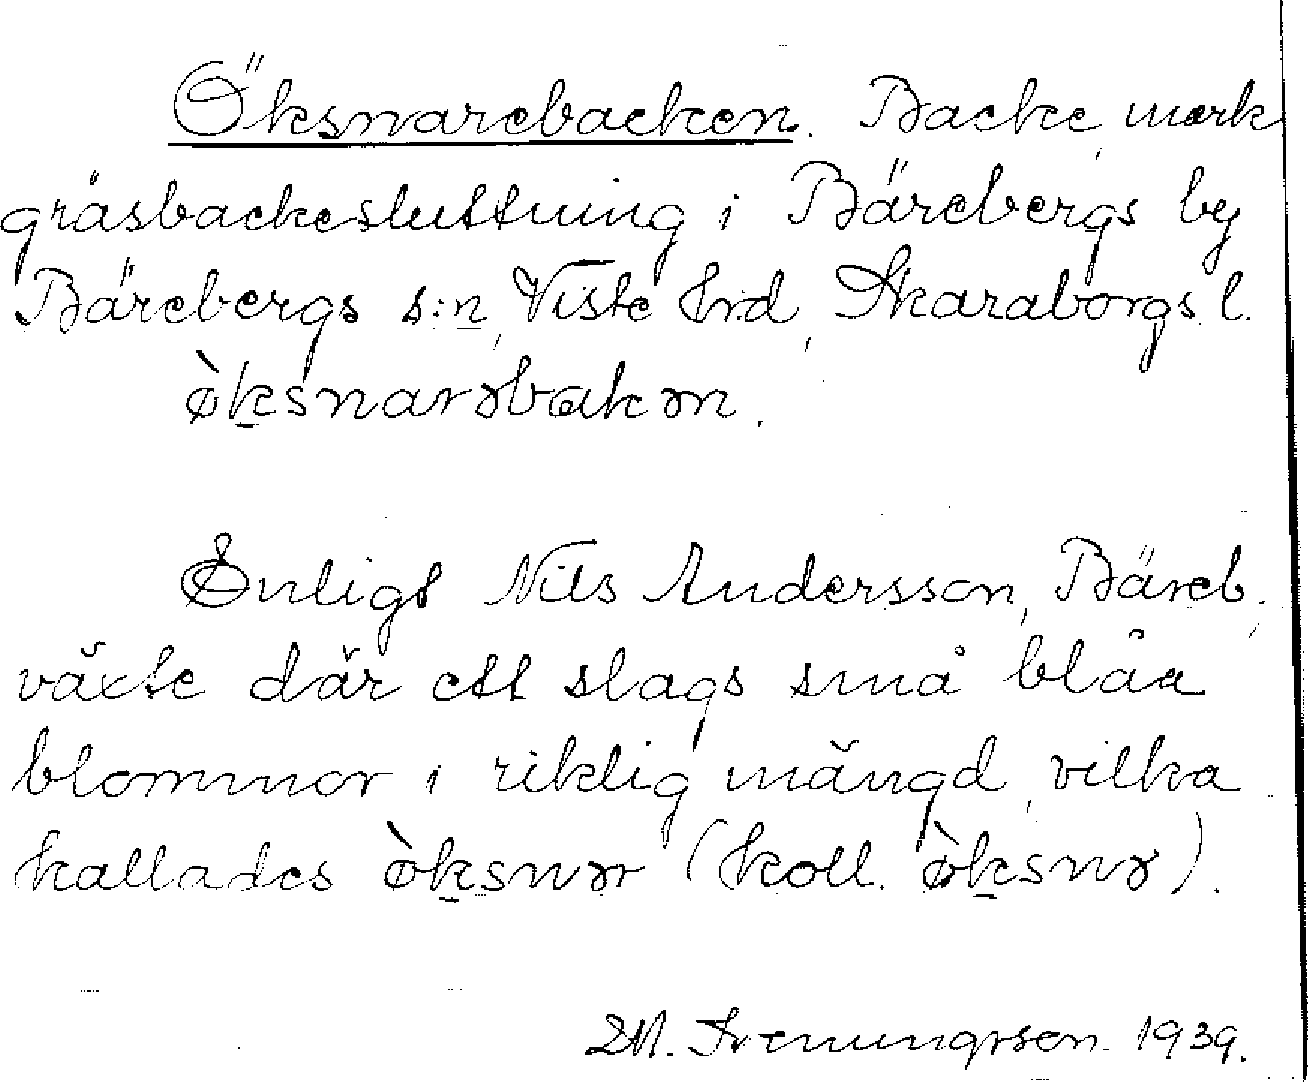 Öksnarebacken. Backe, mark
gräsbackesluttning i Bärebergs by
Bärebergs s:n, Viste hd, Skaraborgs l.
ø̀ksnarəbakən.
Enligt Nils Andersson, Bäreb.,
växte där ett slags små blåa
blommor i riklig mängd, vilka
kallades ø̀ksnər (koll. ø̀ksnə).
M. Svenungsson 1939.